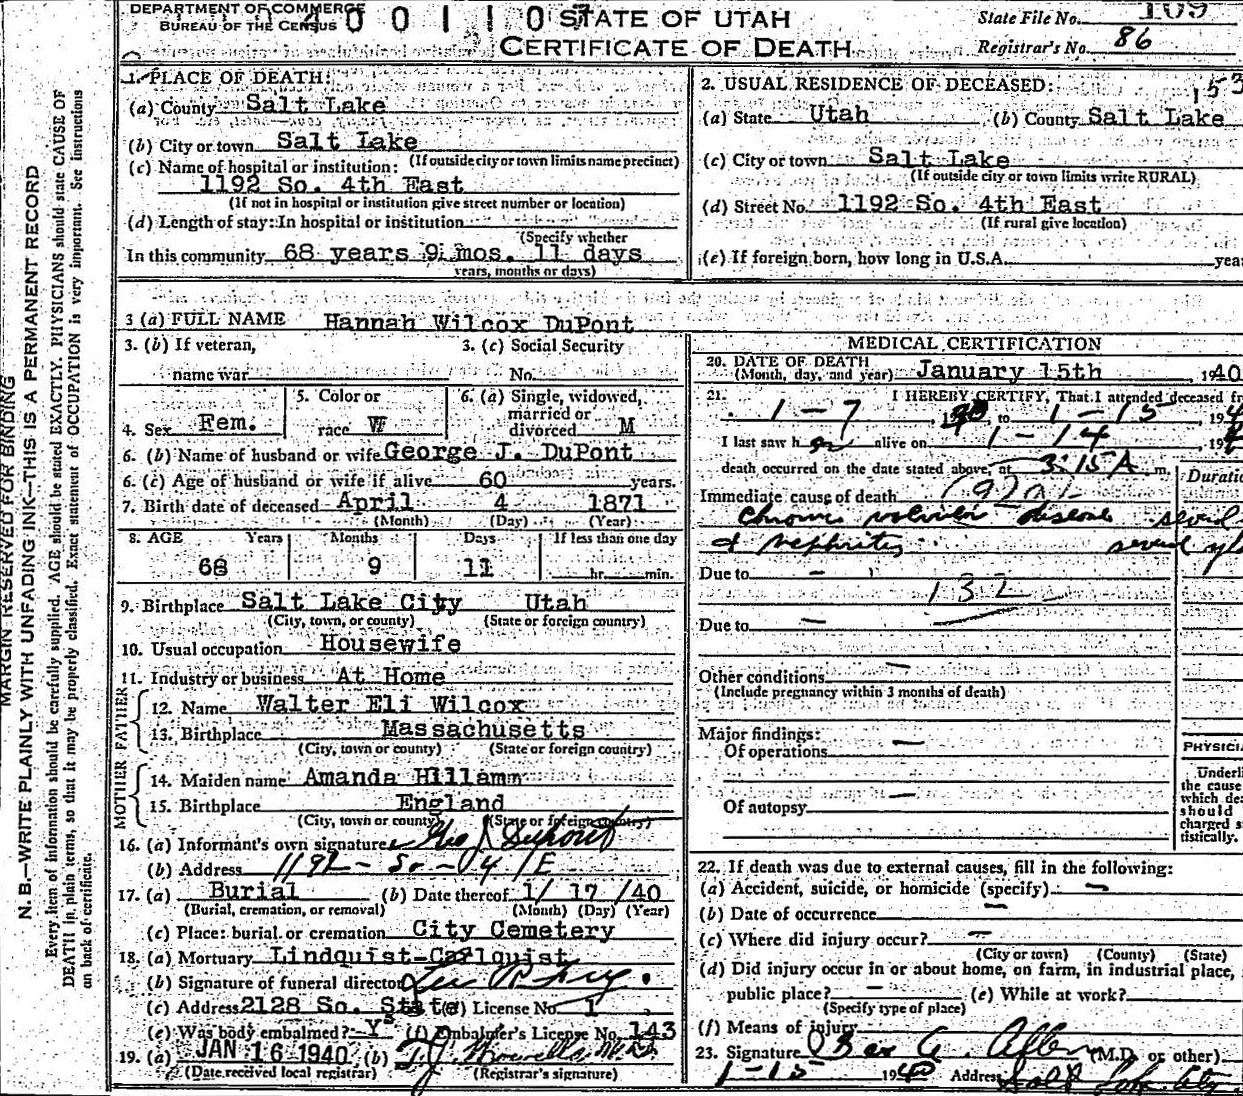 DEPARTMENT OF COMMERCE
BUREAU OF THE CENSUS
STATE OF UTAH
CERTIFICATE OF DEATH
State File No. 109
Registrar's No. 86
MARGIN RESERVED FOR BINDING
N. B.—WRITE PLAINLY WITH UNFADING INK—THIS IS A PERMANENT RECORD
Every item of information should be carefully supplied. AGE should be stated EXACTLY. PHYSICIANS should state CAUSE OF
DEATH in plain terms, so that it may be properly classified. Exact statement of OCCUPATION is very important. See instructions
on back of certificate.
1. PLACE OF DEATH:
(a) County Salt Lake
(b) City or town Salt Lake
(If outside city or town limits name precinct)
(c) Name of hospital or institution:
1192 So. 4th East
(If not in hospital or institution give street number or location)
(d) Length of stay: In hospital or institution
(Specify whether
In this community 68 years 9 mos. 11 days
years, months or days)
2. USUAL RESIDENCE OF DECEASED: 153
(a) State Utah (b) County Salt Lake
(c) City or town Salt Lake
(If outside city or town limits write RURAL)
(d) Street No. 1192 So. 4th East
(If rural give location)
(e) If foreign born, how long in U.S.A. year
3 (a) FULL NAME Hannah Wilcox DuPont
3. (b) If veteran,
name war
3. (c) Social Security
No.
4. Sex Fem.
5. Color or
race W
6. (a) Single, widowed,
married or
divorced M
6. (b) Name of husband or wife George J. DuPont
6. (c) Age of husband or wife if alive 60 years.
7. Birth date of deceased April 4 1871
(Month) (Day) (Year)
8. AGE Years Months Days If less than one day
68 9 11 hr. min.
9. Birthplace Salt Lake City Utah
(City, town, or county) (State or foreign country)
10. Usual occupation Housewife
11. Industry or business At Home
FATHER
12. Name Walter Eli Wilcox
13. Birthplace Massachusetts
(City, town or county) (State or foreign country)
MOTHER
14. Maiden name Amanda Hillamm
15. Birthplace England
(City, town or county) (State or foreign country)
16. (a) Informant's own signature Geo J Dupont
(b) Address 1192 - So - 4 E
17. (a) Burial (b) Date thereof 1/ 17 /40
(Burial, cremation, or removal) (Month) (Day) (Year)
(c) Place: burial or cremation City Cemetery
18. (a) Mortuary Lindquist-Carlquist
(b) Signature of funeral director
(c) Address 2128 So. State (d) License No. 1
(e) Was body embalmed? Ys (f) Embalmer's License No. 143
19. (a) JAN 16 1940 (b)
(Date received local registrar) (Registrar's signature)
MEDICAL CERTIFICATION
20. DATE OF DEATH
(Month, day, and year) January 15th , 1940
21. I HEREBY CERTIFY, That I attended deceased fr
1-7 , 1940 to 1-15 194
I last saw her alive on 1-14 194
death occurred on the date stated above, at 3:15 A m.
Duratio
Immediate cause of death (92a)
chronic valvular disease several
& nephritis several yrs
Due to - 132
Due to -
Other conditions -
(Include pregnancy within 3 months of death)
Major findings:
Of operations -
Of autopsy -
PHYSICIA
Underli
the cause
which dea
should
charged s
tistically.
22. If death was due to external causes, fill in the following:
(a) Accident, suicide, or homicide (specify) -
(b) Date of occurrence -
(c) Where did injury occur? -
(City or town) (County) (State)
(d) Did injury occur in or about home, on farm, in industrial place,
public place? - (e) While at work?
(Specify type of place)
(f) Means of injury
23. Signature (M.D. or other)
1-15 1940 Address Salt Lake City